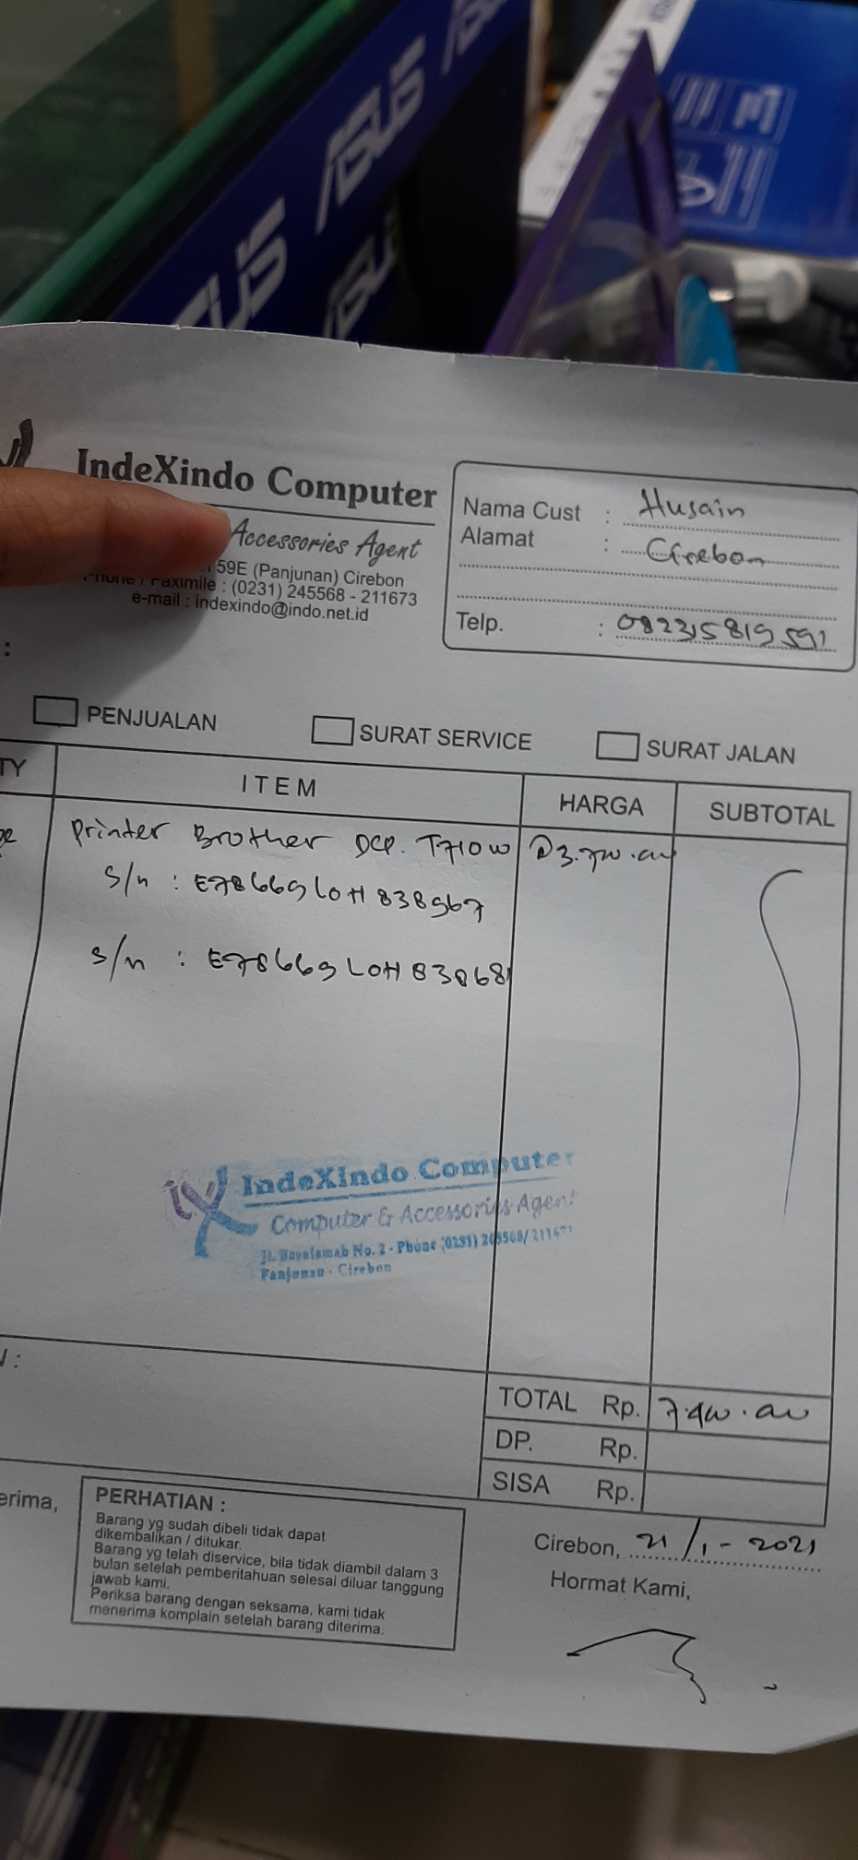 ASUS ASUS
IndeXindo Computer
Accessories Agent
59E (Panjunan) Cirebon
Phone / Faximile : (0231) 245568 - 211673
e-mail : indexindo@indo.net.id
Nama Cust : Husain
Alamat : Cirebon
Telp. : 082315819591
:
PENJUALAN SURAT SERVICE SURAT JALAN
TY ITEM HARGA SUBTOTAL
Printer Brother DCP. T710W @3.700.000
S/n : E78669L0H838967
S/n : E78669L0H83868
IndeXindo Computer
Computer & Accessories Agent
No. 2 - Phone (0231)
Panjunan - Cirebon
TOTAL Rp. 7.400.000
DP. Rp.
SISA Rp.
erima,
PERHATIAN :
Barang yg sudah dibeli tidak dapat
dikembalikan / ditukar.
Barang yg telah diservice, bila tidak diambil dalam 3
bulan setelah pemberitahuan selesai diluar tanggung
jawab kami.
Periksa barang dengan seksama, kami tidak
menerima komplain setelah barang diterima.
Cirebon, 21/1-2021
Hormat Kami,